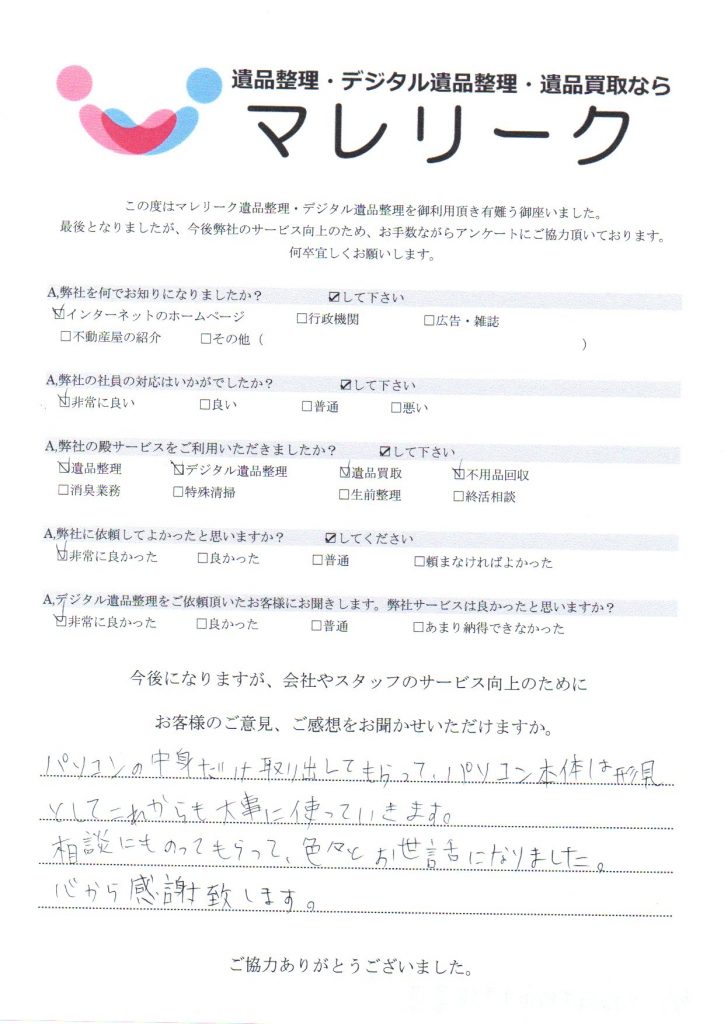 遺品整理・デジタル遺品整理・遺品買取なら
マレリーク
この度はマレリーク遺品整理・デジタル遺品整理を御利用頂き有難う御座いました。
最後となりましたが、今後弊社のサービス向上のため、お手数ながらアンケートにご協力頂いております。
何卒宜しくお願いします。
A,弊社を何でお知りになりましたか？ ☑して下さい
☑インターネットのホームページ □行政機関 □広告・雑誌
□不動産屋の紹介 □その他（ ）
A,弊社の社員の対応はいかがでしたか？ ☑して下さい
☑非常に良い □良い □普通 □悪い
A,弊社の殿サービスをご利用いただきましたか？ ☑して下さい
☑遺品整理 ☑デジタル遺品整理 ☑遺品買取 ☑不用品回収
□消臭業務 □特殊清掃 □生前整理 □終活相談
A,弊社に依頼してよかったと思いますか？ ☑してください
☑非常に良かった □良かった □普通 □頼まなければよかった
A,デジタル遺品整理をご依頼頂いたお客様にお聞きします。弊社サービスは良かったと思いますか？
☑非常に良かった □良かった □普通 □あまり納得できなかった
今後になりますが、会社やスタッフのサービス向上のために
お客様のご意見、ご感想をお聞かせいただけますか。
パソコンの中身だけ取り出してもらって、パソコン本体は形見
としてこれからも大事に使っていきます。
相談にものってもらって、色々とお世話になりました。
心から感謝致します。
ご協力ありがとうございました。